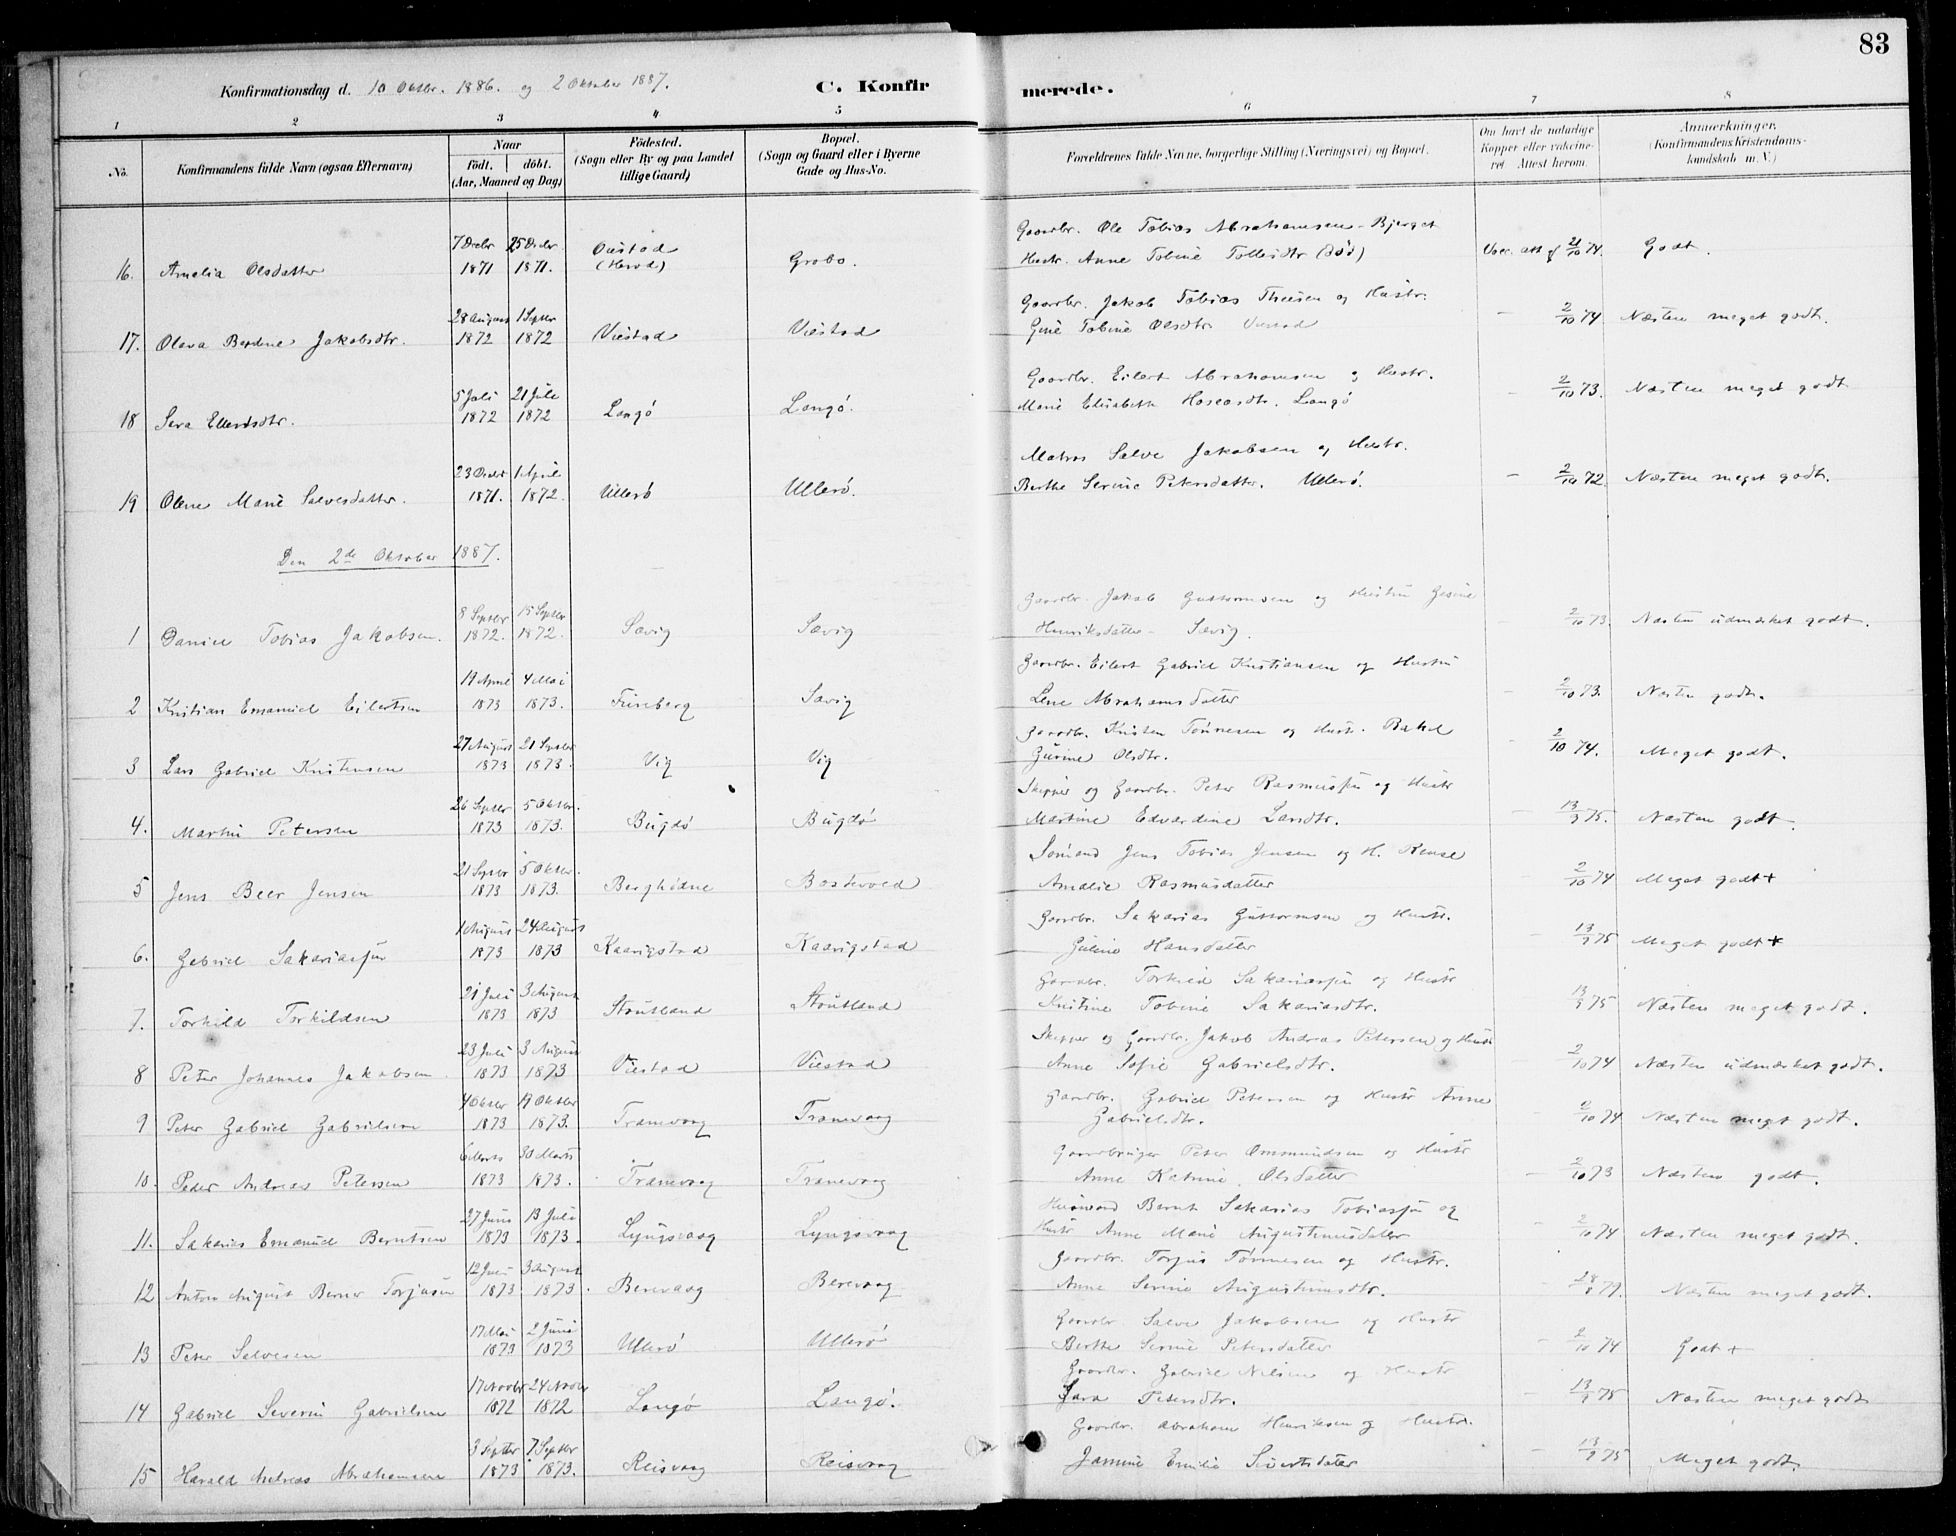 83
Konfirmationsdag d. 10 Oktbr. 1886. og 2 Oktober 1887. C. Konfirmerede.
1 2 3 4 5 6 7 8
No. Konfirmandens fulde Navn (ogsaa Efternavn) Naar Födt. döbt. (Aar, Maaned og Dag) Födested. (Sogn eller By og paa Landet tillige Gaard) Bopæl. (Sogn og Gaard eller i Byerne Gade og Hus-No. Forældrenes fulde Navne, borgerlige Stilling (Næringsvei) og Bopæl. Om havt de naturlige Kopper eller vaccineret Attest herom. Anmærkninger. (Konfirmandens Kristendomskundskab m. V.)
7 Decbr 25 Decbr Gaardbr. Ole Tobias Abrahamsen - Bjerget
16. Amelia Olsdatter 1871 1871. (Herad) Grobo. Hustr. Anne Tobine Tollesdtr (död) 21/10 74. Godt.
28 August 1 Septbr Gaardbr. Jakob Tobias Theisen og Hustr.
17. Olava Berdine Jakobsdtr. 1872 1872 Viestad Viestad Gine Tobine Olsdtr. Viestad - 2/10 74 Næsten meget godt.
5 Juli 21 Juli Gaardbr. Eilert Abrahamsen og Hustr.
18 Sera Ellertsdtr. 1872 1872 Langö Langö. Marie Elisabeth Hoseasdtr. Langö - 2/10 73. Næsten meget godt
23 Decbr 1 April Matros Salve Jakobsen og Hustr.
19 Olene Marie Salvesdatter. 1871. 1872. Ullerö Ullerö. Berthe Serine Petersdatter. Ullerö. - 2/10 72 Næsten meget godt.
Den 2de Oktober 1887.
8 Septbr 15 Septbr Gaardbr. Jakob Guttormsen og Hustru Gesine
1 Daniel Tobias Jakobsen. 1872. 1872. Sævig Sævig Henriksdatter - Sævig. - 2/10 73. Næsten udmærket godt.
19 April 4 Mai Gaardbr. Eilert Gabriel Kristiansen og Hustru
2 Kristian Emanuel Eilertsen 1873 1873. Fureberg Sævig Lene Abrahamsdatter - 2/10 73. Næsten godt.
27 August 21 Septbr Gaardbr. Kristen Tönnesen og Hustr. Rakel
3 Lars Gabriel Kristensen 1873 1873. Vig Vig Gurine Olsdtr. - 2/10 74. Meget godt.
26 Septbr 5 Oktbr. Skipper og Gaardbr. Peter Rasmussen og Hustr
4. Martin Petersen 1873 1873. Bugdö Bugdö Martine Edvardine Larsdtr. - 13/9 75. Næsten godt.
21 Septbr 5 Oktbr. Sömand Jens Tobias Jensen og H.
5 Jens Beer Jensen 1873 1873. Amalie Rasmusdatter - 2/10 74 Meget godt +
1 August 24 August Gaardbr. Sakarias Guttormsen og Hustr.
6. Gabriel Sakariassen 1873 1873 Kaarigstad Kaarigstad Juline Hansdatter - 13/9 75 Meget godt +
21 Juli 3 August Gaardbr. Torkild Sakariassen og Hustr
7. Torkild Torkildsen 1873 1873 Stoutland Stoutland Kristine Tobine Sakariasdtr. 13/9 75 Næsten meget godt.
23 Juli 3 August Skipper og Gaardbr. Jakob Andreas Petersen og Hustr
8 Peter Johannes Jakobsen 1873 1873 Viestad Viestad Anne Sofie Gabrielsdtr. - 2/10 74 Næsten udmærket godt.
4 Oktbr 19 Oktbr Gaardbr. Gabriel Petersen og Hustr Anne
9 Peter Gabriel Gabrielsen 1873 1873. Tranevaag Tranevaag Gabrielsdtr. - 2/10 74 Næsten meget godt.
6 Marts 30 Marts Gaardbruger Peter Ommundsen og Hustr
10. Peder Andreas Petersen 1873 1873. Tranevaag Tranevaag Anne Katrine Olsdatter - 2/10 73 Næsten godt.
27 Juni 13 Juli Husmand Bernt Sakarias Tobiassen og
11. Sakarias Emanuel Berntsen 1873 1873. Lyngsvaag Lyngsvaag Hustr Anne Marie Augustinusdatter - 2/10 74 Næsten meget godt.
12 Juli 3 August Gaardbr. Torjus Tönnesen og Hustr.
12 Anton August Berner Torjusen 1873 1873. Berevaag Berevaag Anne Serine Augustinusdtr. - 28/8 79. Næsten meget godt.
17 Mai 2 Juni Gaardbr. Salve Jakobsen og Hustr
13 Peter Salvesen 1873 1873 Ullerö Ullerö Berthe Serine Petersdatter - 2/10 74 Godt +
17 Novbr 24 Novbr Gaardbr. Gabriel Nilsen og Hustr
14 Gabriel Severin Gabrielsen 1872 1872 Langö Langö. Sara Petersdtr. - 13/9 75 Næsten meget godt
3 Septbr 7 Septbr Gaardbr. Abraham Henriksen og Hustr.
15 Harald Andreas Abrahamsen 1873 1873. Reisvaag Reisvaag Jamine Emilie Sivertsdatter - 13/9 75 Meget godt.